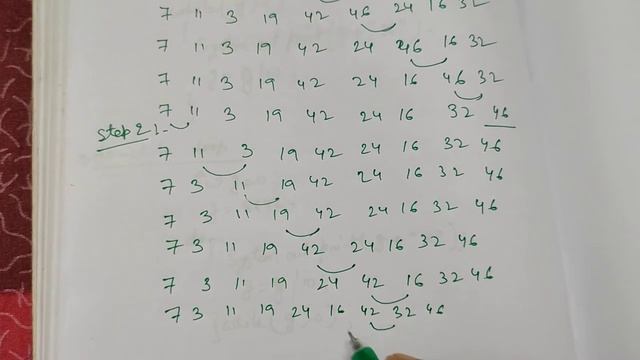 7 11 3 19 42 46 24 16 32
7 11 3 19 42 24 46 16 32
7 11 3 19 42 24 16 46 32
7 11 3 19 42 24 16 32 46
Step 2 :-
7 11 3 19 42 24 16 32 46
7 3 11 19 42 24 16 32 46
7 3 11 19 42 24 16 32 46
7 3 11 19 42 24 16 32 46
7 3 11 19 24 42 16 32 46
7 3 11 19 24 16 42 32 46